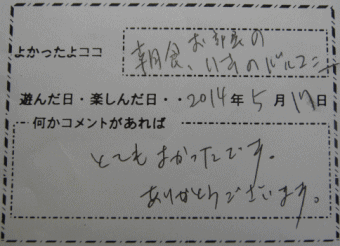 お部屋の
よかったよココ 朝食、いすのバルコニー
遊んだ日・楽しんだ日・・2014年5月17日
何かコメントがあれば
とてもよかったです。
ありがとうございます。